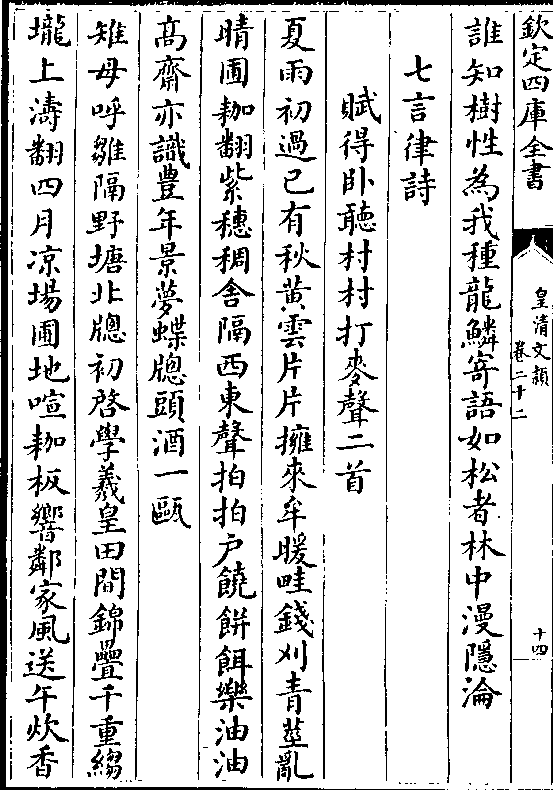 欽定四庫全書
皇清文穎
卷二十二
十四
誰知樹性為我種龍鱗寄語如松者林中漫隱淪
七言律詩
賦得卧聽村村打麥聲二首
夏雨初過已有秋黄雲片片擁來牟暖畦錢刈青莖亂
晴圃耞翻紫穗稠舍隔西東聲拍拍户饒餅餌樂油油
髙齋亦識豊年景夢蝶牕頭酒一甌
雉母呼雛隔野塘北牕初啓學羲皇田間錦疊千重縐
壠上濤翻四月凉場圃地喧耞板響鄰家風送午炊香